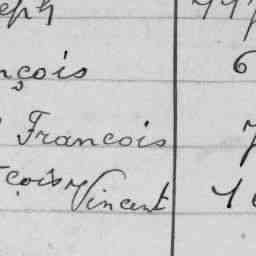 eph
nçois 6
Francois 7
çois Vincent 1